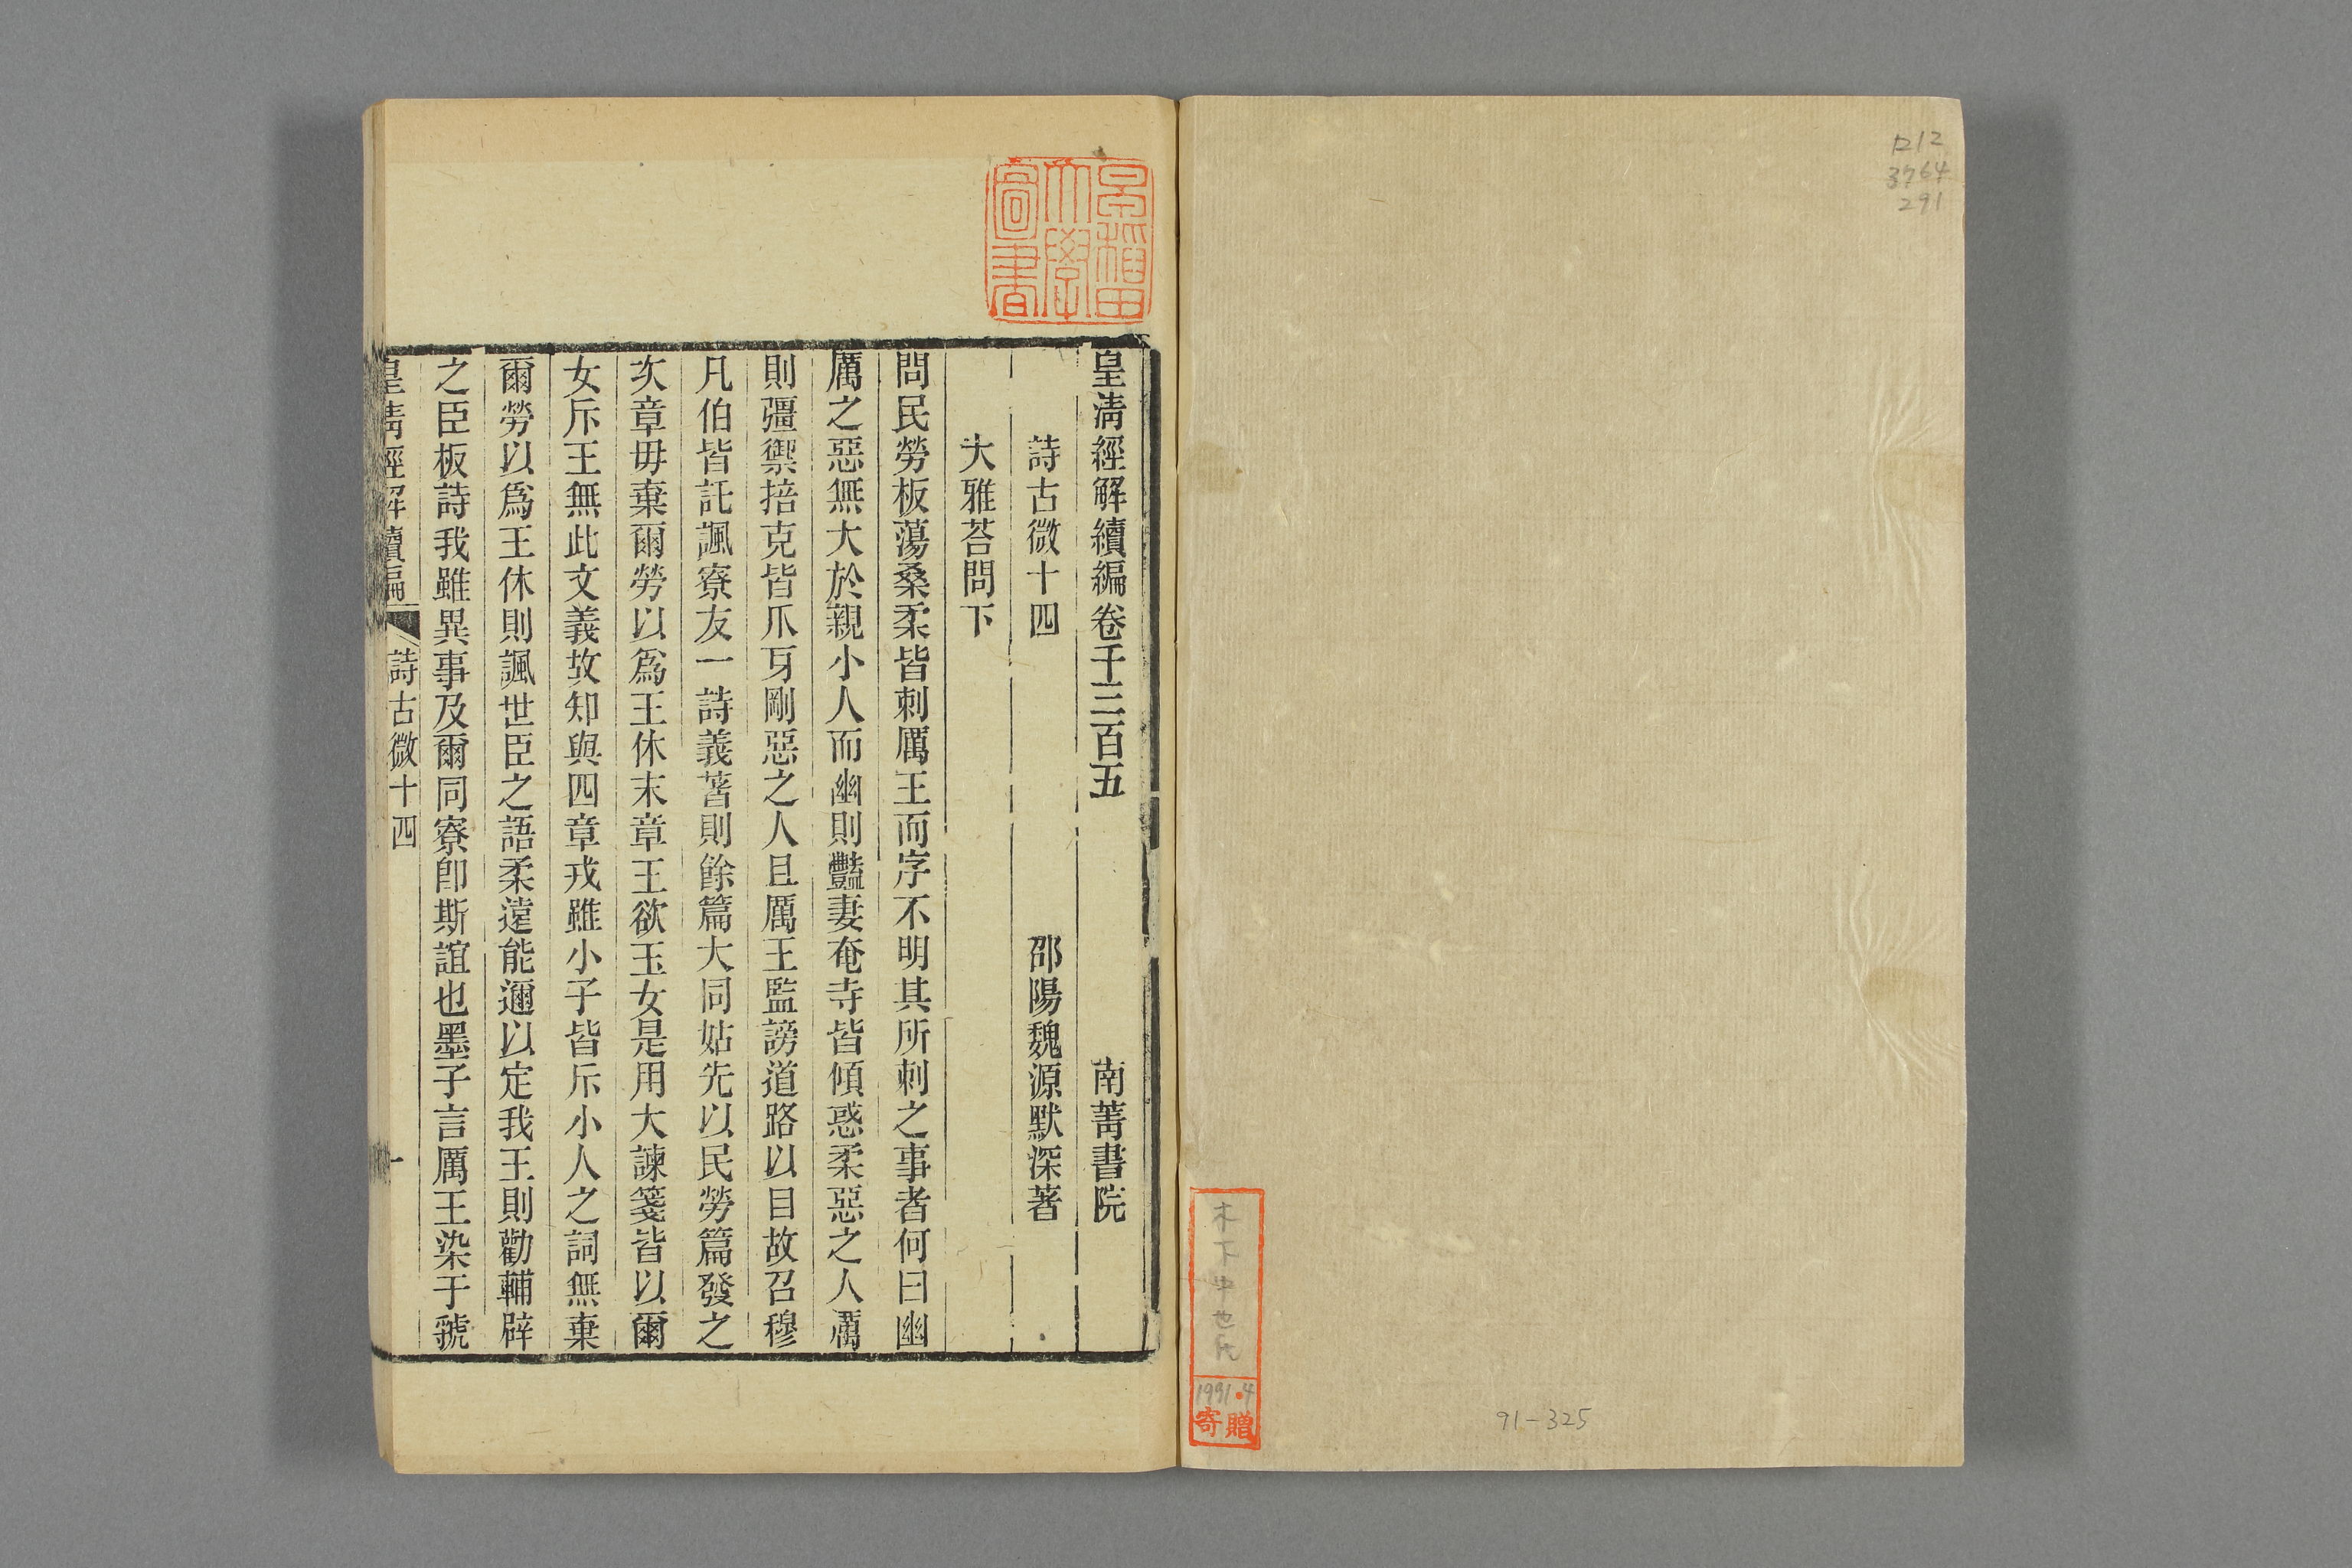 ロ12
3764
291
木下
氏
1991.4
寄贈
91-325
早稲田
大學
圖書
皇清經解續編卷千三百五 南菁書院
詩古微十四 邵陽魏源默深著
大雅荅問下
問民勞板蕩桑柔皆刺厲王而序不明其所刺之事者何曰幽
厲之惡無大於親小人而幽則豔妻奄寺皆傾惑柔惡之人厲
則彊禦掊克皆爪牙剛惡之人且厲王監謗道路以目故召穆
凡伯皆託諷寮友一詩義著則餘篇大同姑先以民勞篇發之
次章毋棄爾勞以爲王休末章王欲玉女是用大諫箋皆以爾
女斥王無此文義故知與四章戎雖小子皆斥小人之詞無棄
爾勞以爲王休則諷世臣之語柔遠能邇以定我王則勸輔辟
之臣板詩我雖異事及爾同寮卽斯誼也墨子言厲王染于虢
皇清經解續編 詩古微十四 一